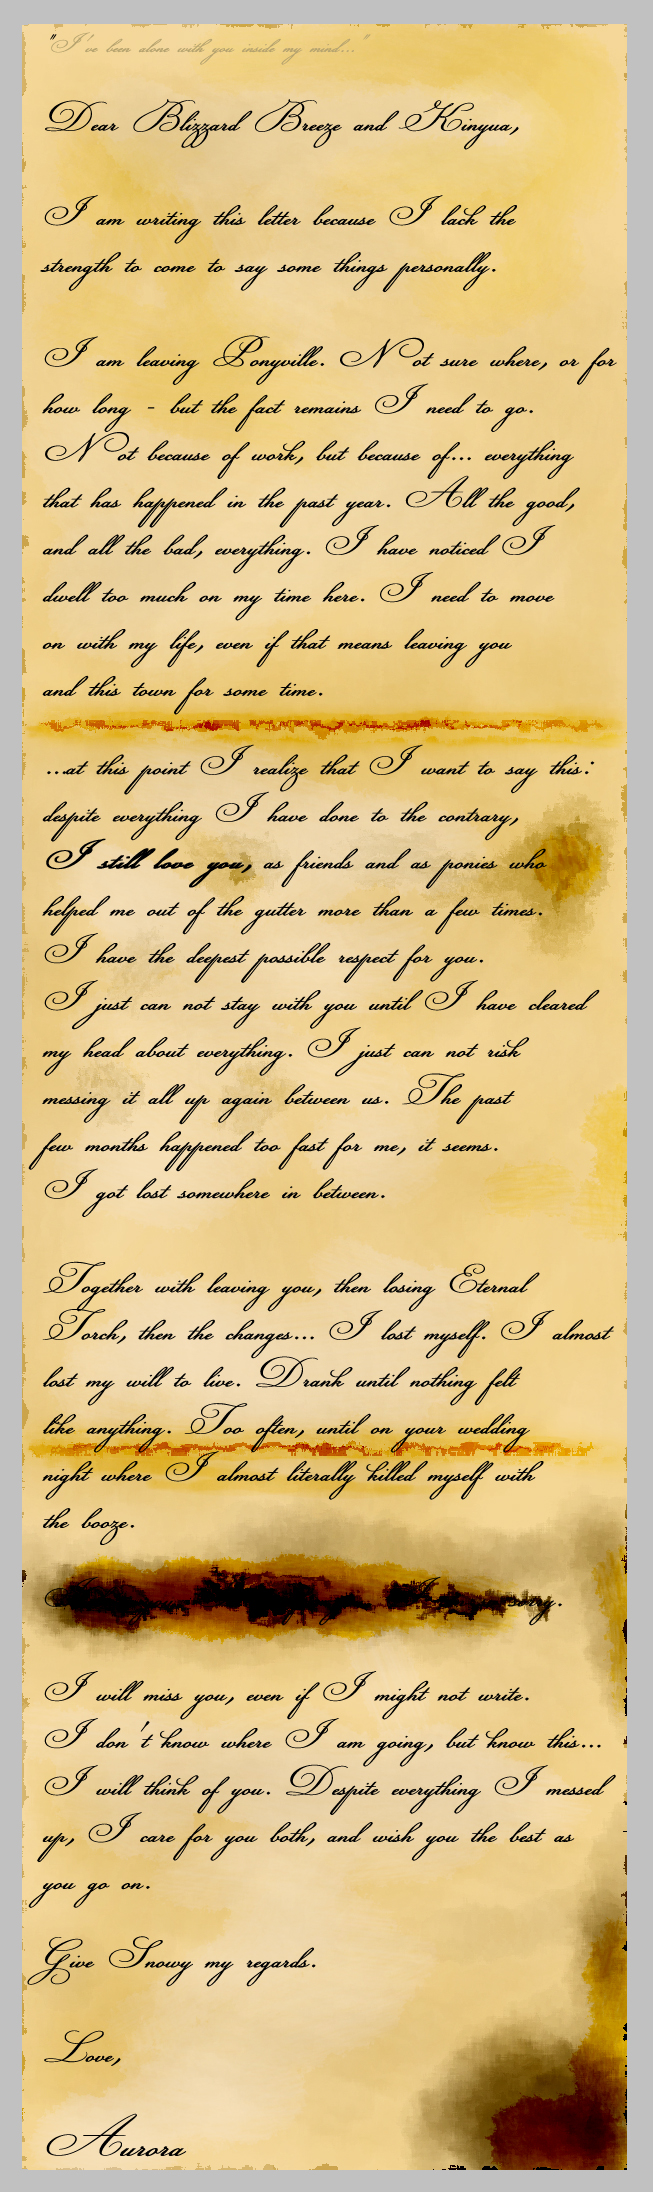 "I've been alone with you inside my mind..."
Dear Blizzard Breeze and Kinyua,
I am writing this letter because I lack the
strength to come to say some things personally.
I am leaving Ponyville. Not sure where, or for
how long - but the fact remains I need to go.
Not because of work, but because of... everything
that has happened in the past year. All the good,
and all the bad, everything. I have noticed I
dwell too much on my time here. I need to move
on with my life, even if that means leaving you
and this town for some time.
...at this point I realize that I want to say this:
despite everything I have done to the contrary,
I still love you, as friends and as ponies who
helped me out of the gutter more than a few times.
I have the deepest possible respect for you.
I just can not stay with you until I have cleared
my head about everything. I just can not risk
messing it all up again between us. The past
few months happened too fast for me, it seems.
I got lost somewhere in between.
Together with leaving you, then losing Eternal
Torch, then the changes... I lost myself. I almost
lost my will to live. Drank until nothing felt
like anything. Too often, until on your wedding
night where I almost literally killed myself with
the booze.
sorry.
I will miss you, even if I might not write.
I don't know where I am going, but know this...
I will think of you. Despite everything I messed
up, I care for you both, and wish you the best as
you go on.
Give Snowy my regards.
Love,
Aurora